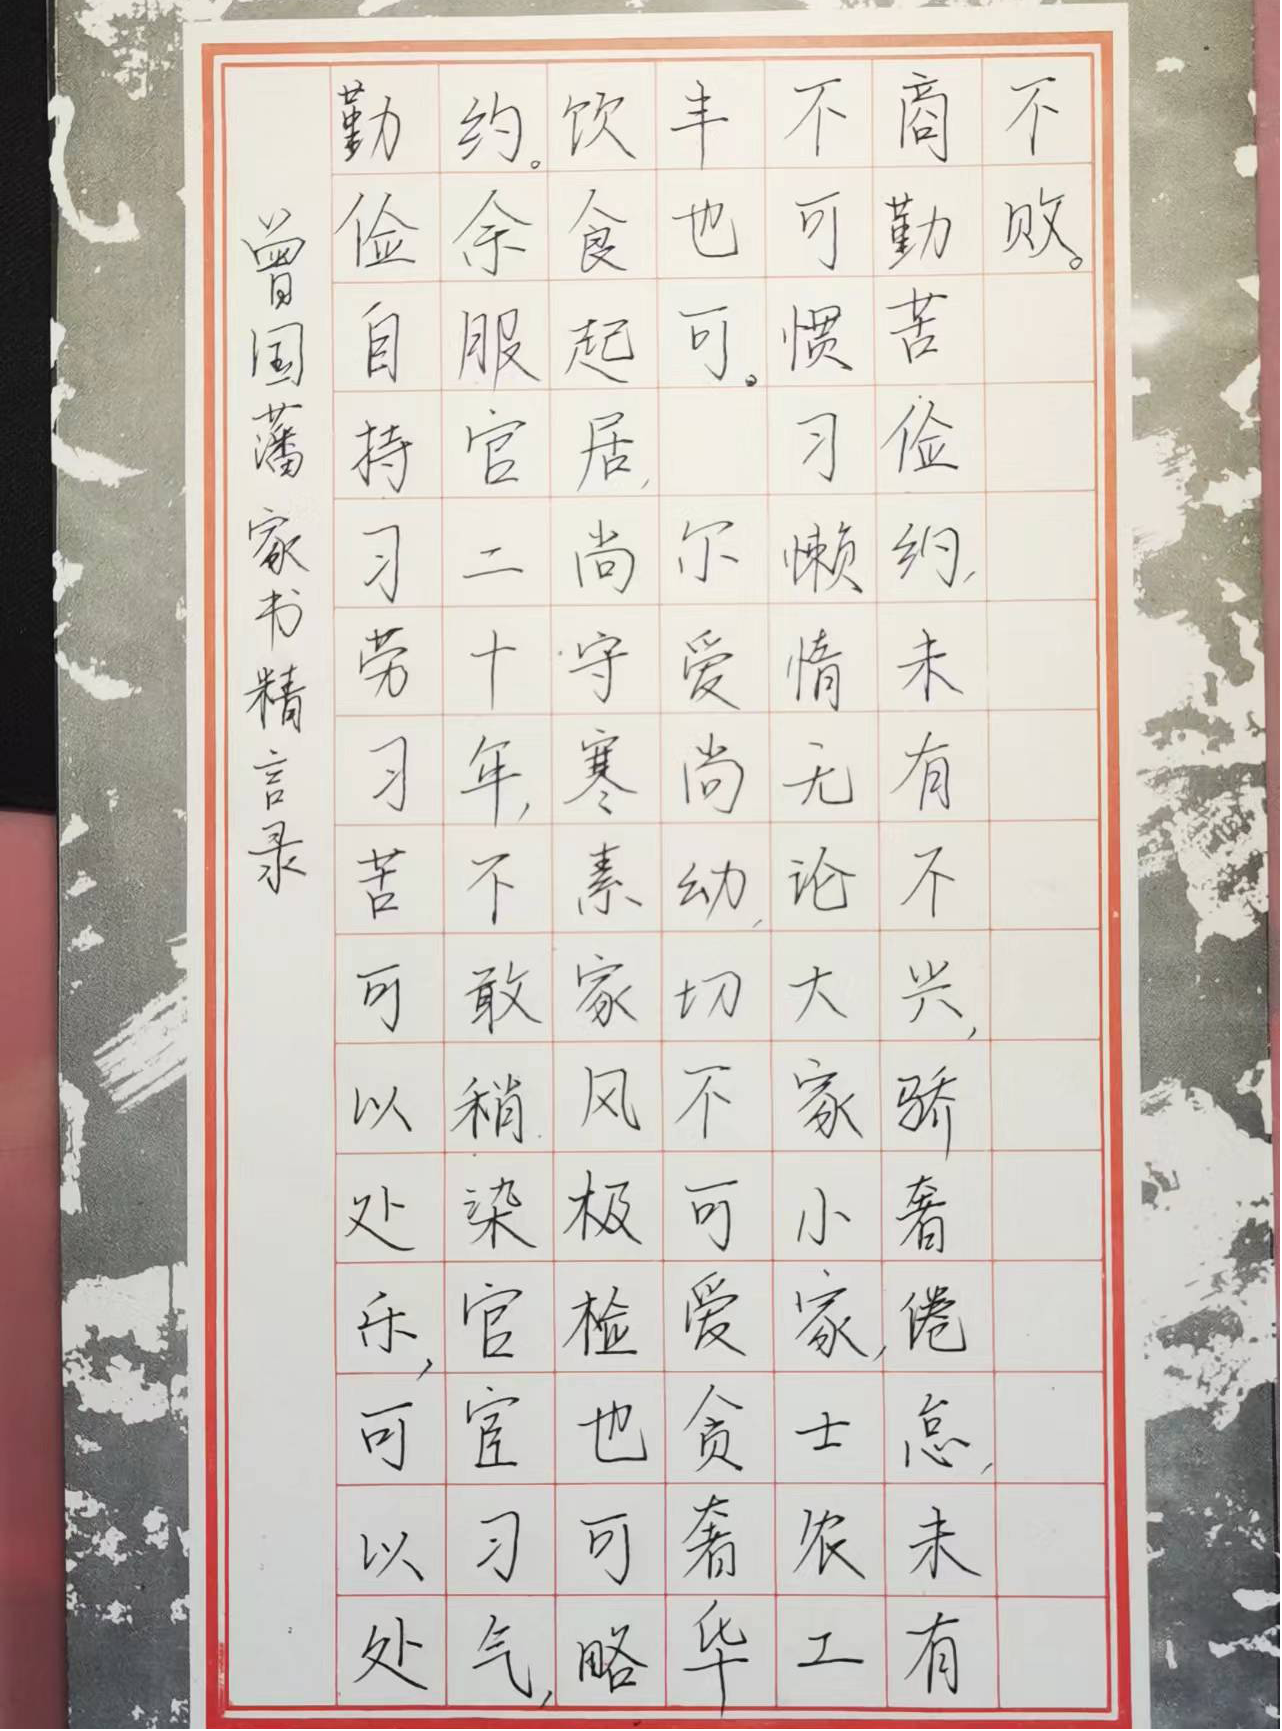 曾国藩家书精言录
勤俭自持习劳习苦可以处乐,可以处
约。余服官二十年,不敢稍染官宦习气,
饮食起居,尚守寒素家风极检也可略
丰也可。 尔爱尚幼,切不可爱贪奢华
不可惯习懒惰无论大家小家,士农工
商勤苦俭约,未有不兴,骄奢倦怠,未有
不败。